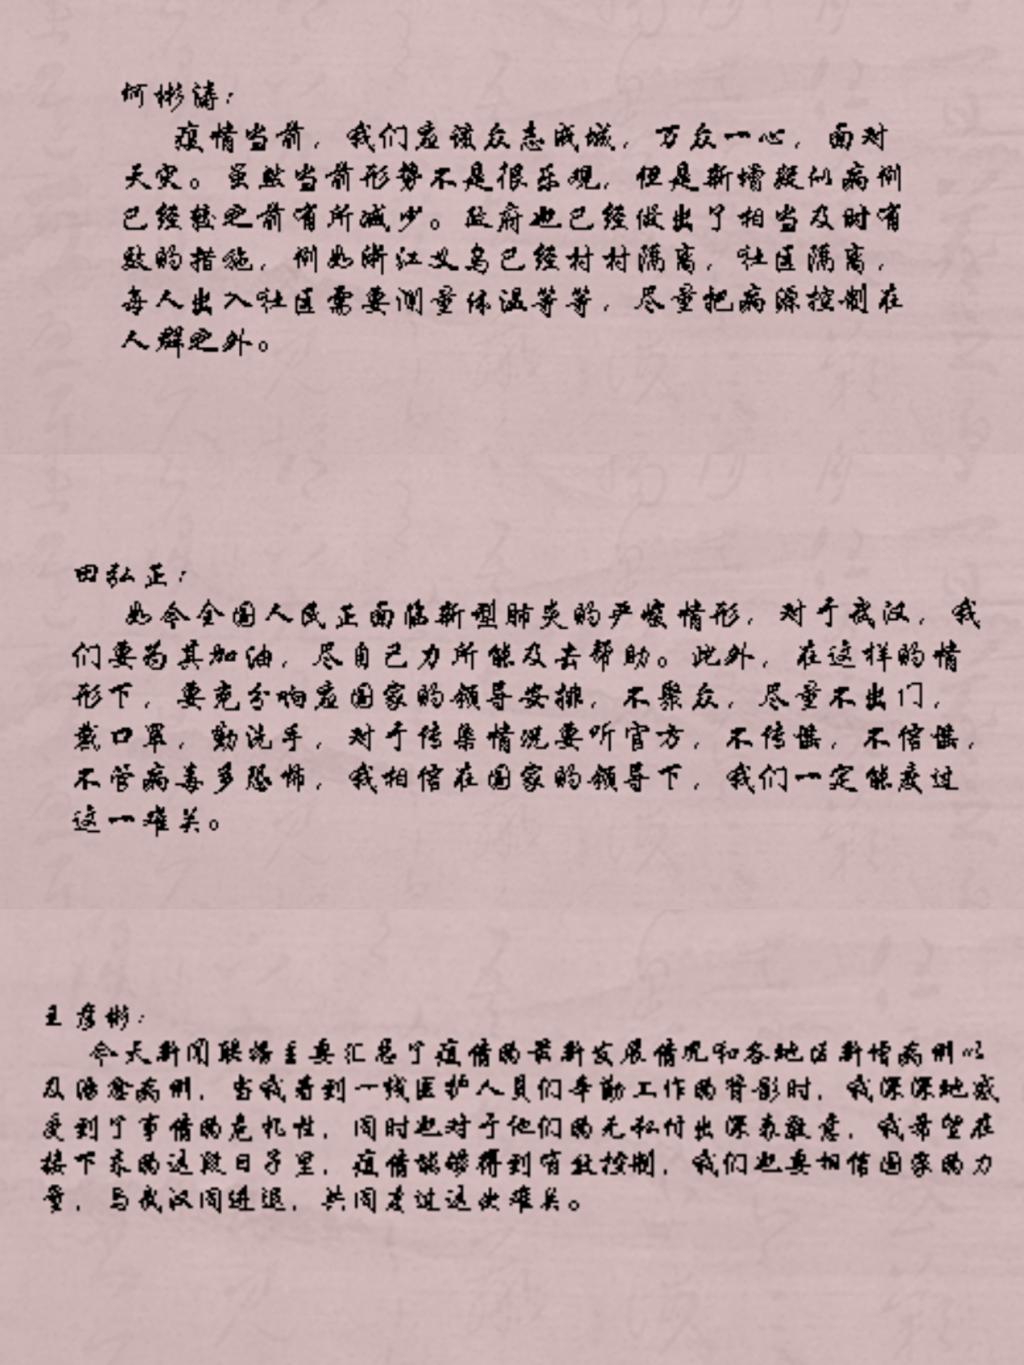 何彬涛：
疫情当前，我们应该众志成城，万众一心，面对
天灾。虽然当前形势不是很乐观，但是新增疑似病例
已经较之前有所减少。政府也已经做出了相当及时有
效的措施，例如浙江义乌已经村村隔离，社区隔离，
每人出入社区需要测量体温等等，尽量把病源控制在
人群之外。
田弘正：
如今全国人民正面临新型肺炎的严峻情形，对于武汉，我
们要为其加油，尽自己力所能及去帮助。此外，在这样的情
形下，要充分响应国家的领导安排，不聚众，尽量不出门，
戴口罩，勤洗手，对于传染情况要听官方，不传谣，不信谣，
不管病毒多恐怖，我相信在国家的领导下，我们一定能度过
这一难关。
王彦彬：
今天新闻联播主要汇总了疫情的最新发展情况和各地区新增病例以
及治愈病例，当我看到一线医护人员们辛勤工作的背影时，我深深地感
受到了事情的危机性，同时也对于他们的无私付出深表敬意，我希望在
接下来的这段日子里，疫情能够得到有效控制，我们也要相信国家的力
量，与武汉同进退，共同度过这次难关。